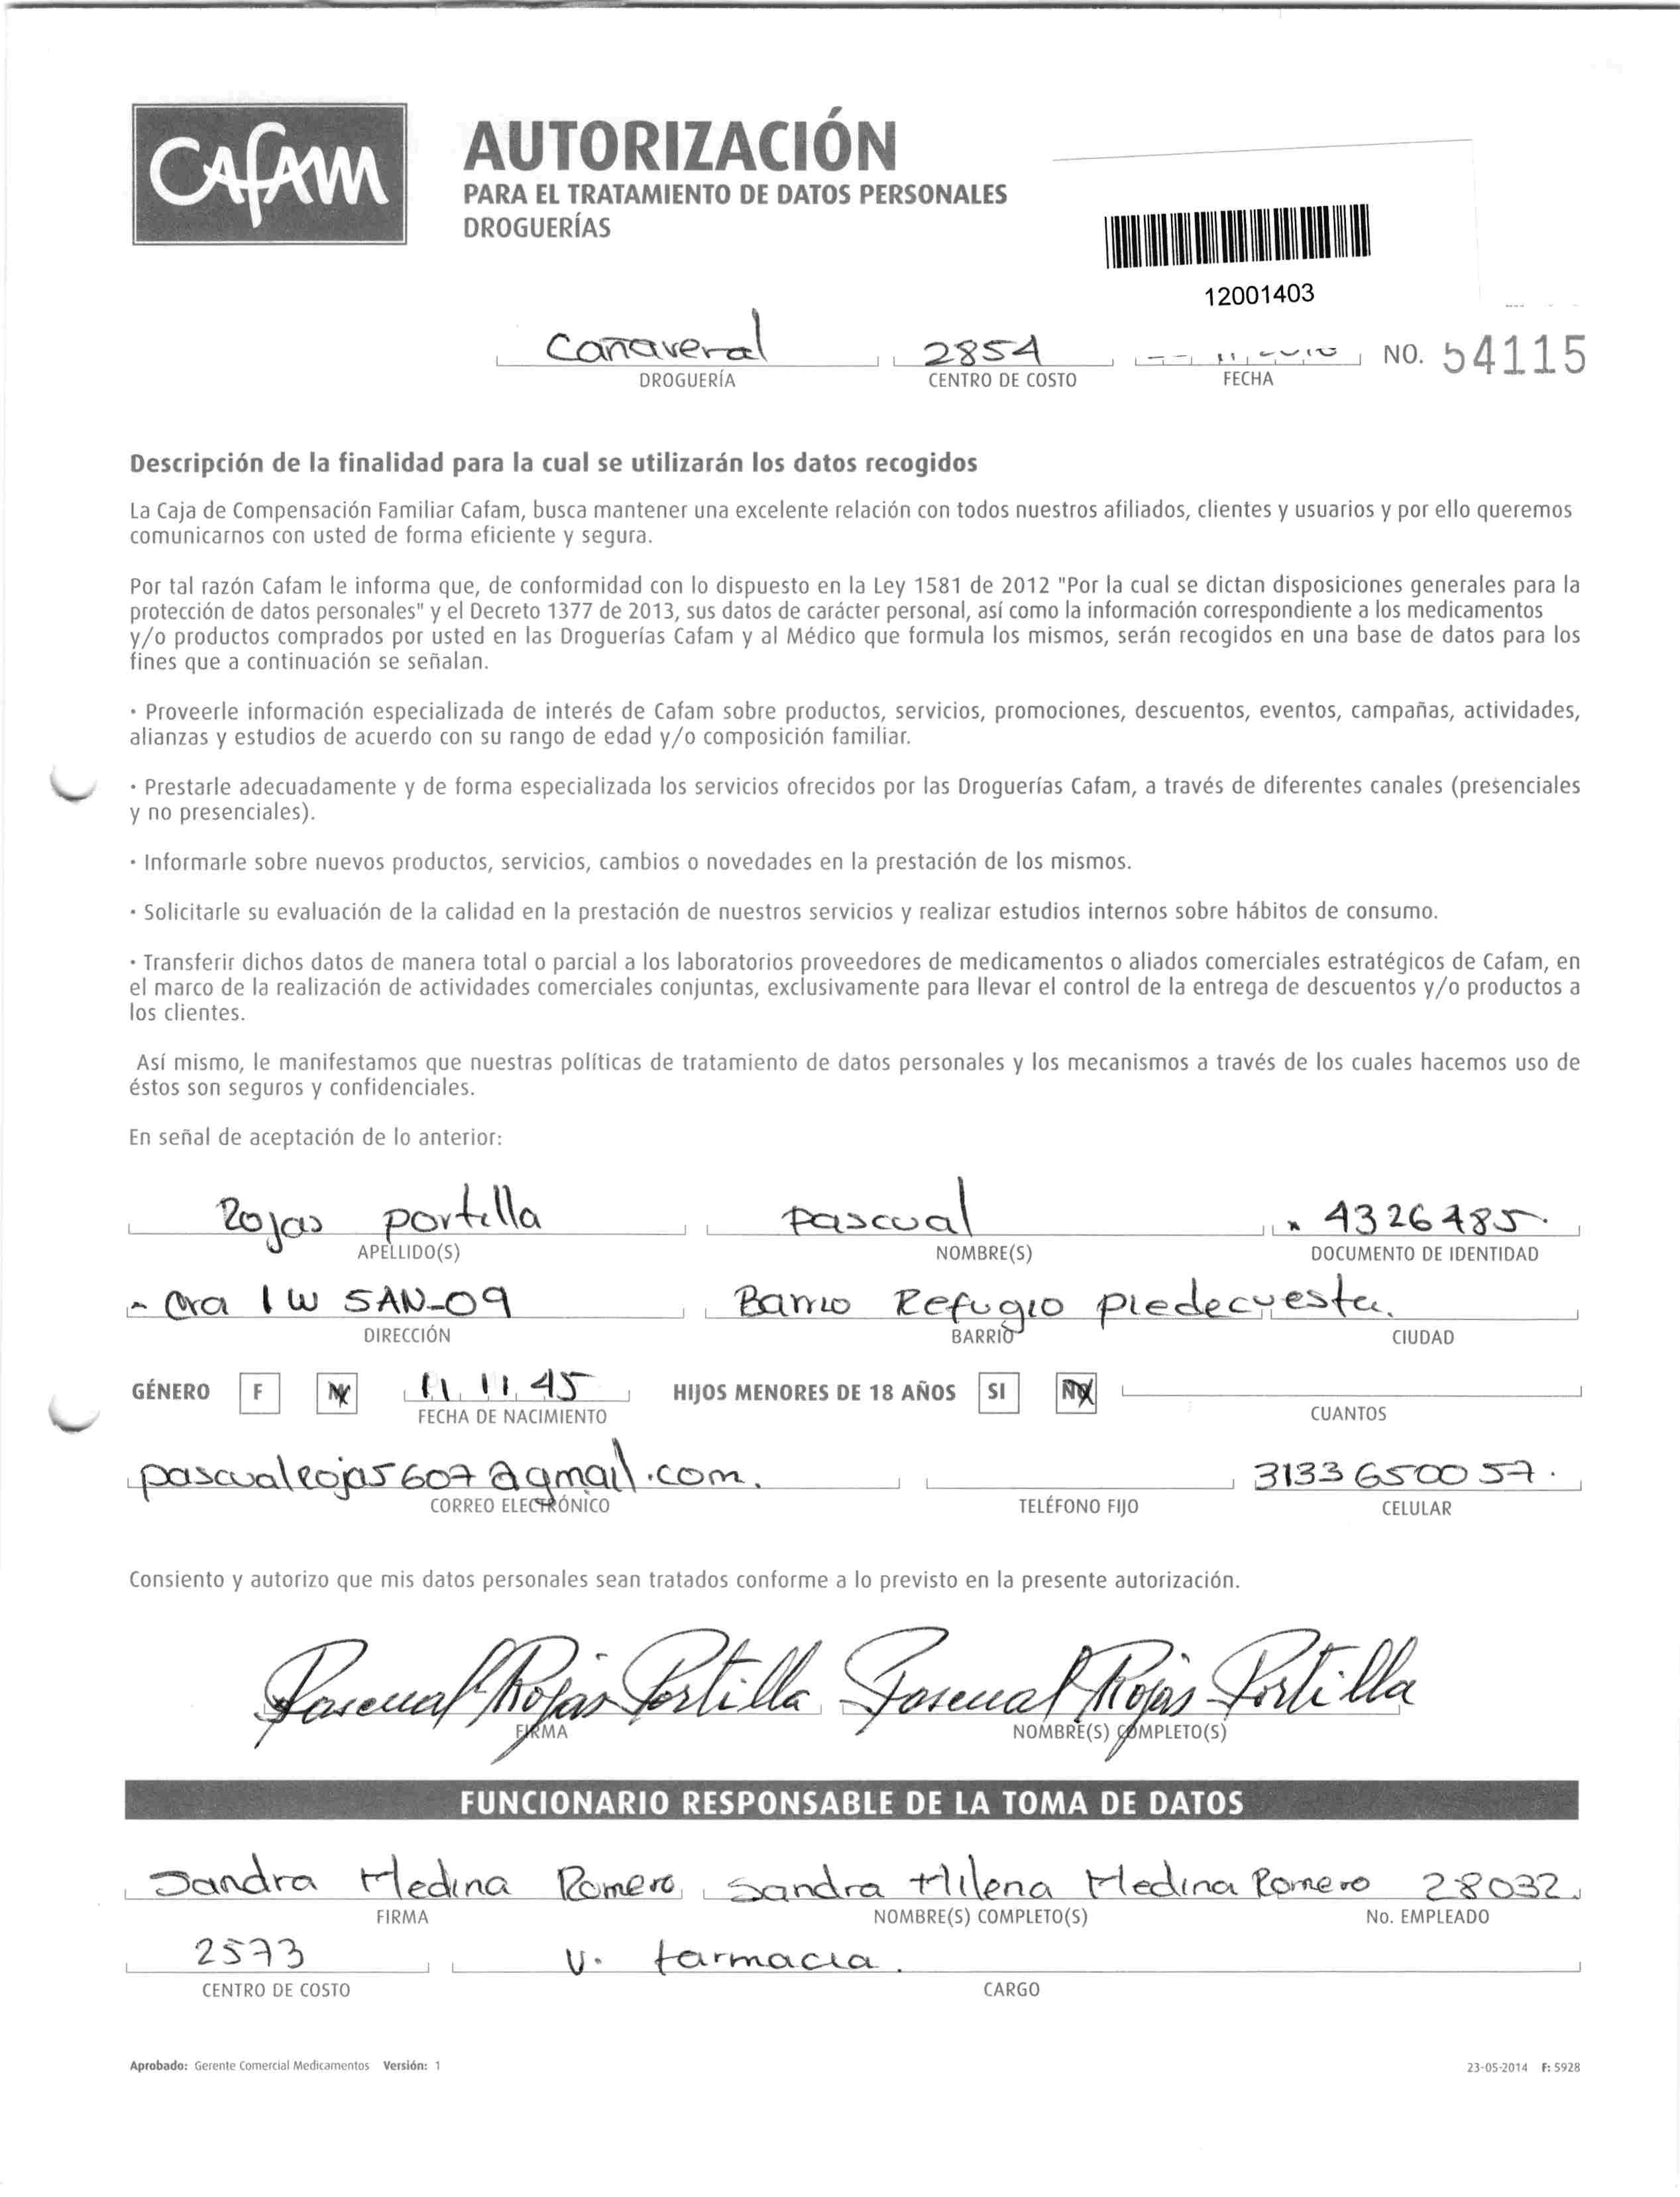 CAFAM
AUTORIZACIÓN
PARA EL TRATAMIENTO DE DATOS PERSONALES
DROGUERÍAS
12001403
Cañaveral 2854 NO. 54115
DROGUERÍA CENTRO DE COSTO FECHA
Descripción de la finalidad para la cual se utilizarán los datos recogidos
La Caja de Compensación Familiar Cafam, busca mantener una excelente relación con todos nuestros afiliados, clientes y usuarios y por ello queremos
comunicarnos con usted de forma eficiente y segura.
Por tal razón Cafam le informa que, de conformidad con lo dispuesto en la Ley 1581 de 2012 "Por la cual se dictan disposiciones generales para la
protección de datos personales" y el Decreto 1377 de 2013, sus datos de carácter personal, así como la información correspondiente a los medicamentos
y/o productos comprados por usted en las Droguerías Cafam y al Médico que formula los mismos, serán recogidos en una base de datos para los
fines que a continuación se señalan.
· Proveerle información especializada de interés de Cafam sobre productos, servicios, promociones, descuentos, eventos, campañas, actividades,
alianzas y estudios de acuerdo con su rango de edad y/o composición familiar.
· Prestarle adecuadamente y de forma especializada los servicios ofrecidos por las Droguerías Cafam, a través de diferentes canales (presenciales
y no presenciales).
· Informarle sobre nuevos productos, servicios, cambios o novedades en la prestación de los mismos.
· Solicitarle su evaluación de la calidad en la prestación de nuestros servicios y realizar estudios internos sobre hábitos de consumo.
· Transferir dichos datos de manera total o parcial a los laboratorios proveedores de medicamentos o aliados comerciales estratégicos de Cafam, en
el marco de la realización de actividades comerciales conjuntas, exclusivamente para llevar el control de la entrega de descuentos y/o productos a
los clientes.
Así mismo, le manifestamos que nuestras políticas de tratamiento de datos personales y los mecanismos a través de los cuales hacemos uso de
éstos son seguros y confidenciales.
En señal de aceptación de lo anterior:
Rojas portilla pascual 4326485.
APELLIDO(S) NOMBRE(S) DOCUMENTO DE IDENTIDAD
Cra 1W 5AN-09 Barrio Refugio piedecuesta.
DIRECCIÓN BARRIO CIUDAD
GÉNERO F M 11 11 45 HIJOS MENORES DE 18 AÑOS SI NO
FECHA DE NACIMIENTO CUANTOS
pascualrojas607@gmail.com. 3133650057.
CORREO ELECTRÓNICO TELÉFONO FIJO CELULAR
Consiento y autorizo que mis datos personales sean tratados conforme a lo previsto en la presente autorización.
Pascual Rojas Portilla Pascual Rojas Portilla
FIRMA NOMBRE(S) COMPLETO(S)
FUNCIONARIO RESPONSABLE DE LA TOMA DE DATOS
Sandra Medina Romero Sandra Milena Medina Romero 28032
FIRMA NOMBRE(S) COMPLETO(S) No. EMPLEADO
2573 V. farmacia.
CENTRO DE COSTO CARGO
Aprobado: Gerente Comercial Medicamentos Versión: 1 23-05-2014 F: 5928